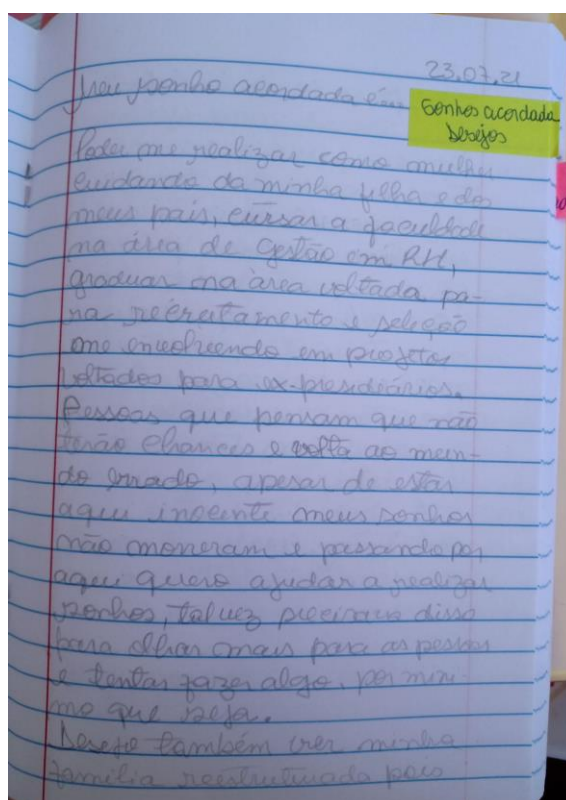 23.07.21
Meu sonho acordada é...
Sonhos acordada
Desejos
Poder me realizar como mulher
cuidando da minha filha e dos
meus pais, cursar a faculdade
na área de Gestão em RH,
graduar na área voltada pa-
ra recrutamento e seleção
me envolvendo em projetos
voltados para ex-presidiários.
Pessoas que pensam que não
terão chances e volta ao mun-
do errado, apesar de estar
aqui inocente meus sonhos
não morreram e passando por
aqui quero ajudar a realizar
sonhos, talvez precisava disso
para olhar mais para as pessoas
e tentar fazer algo, por míni-
mo que seja.
Desejo também ver minha
família reestruturada pois